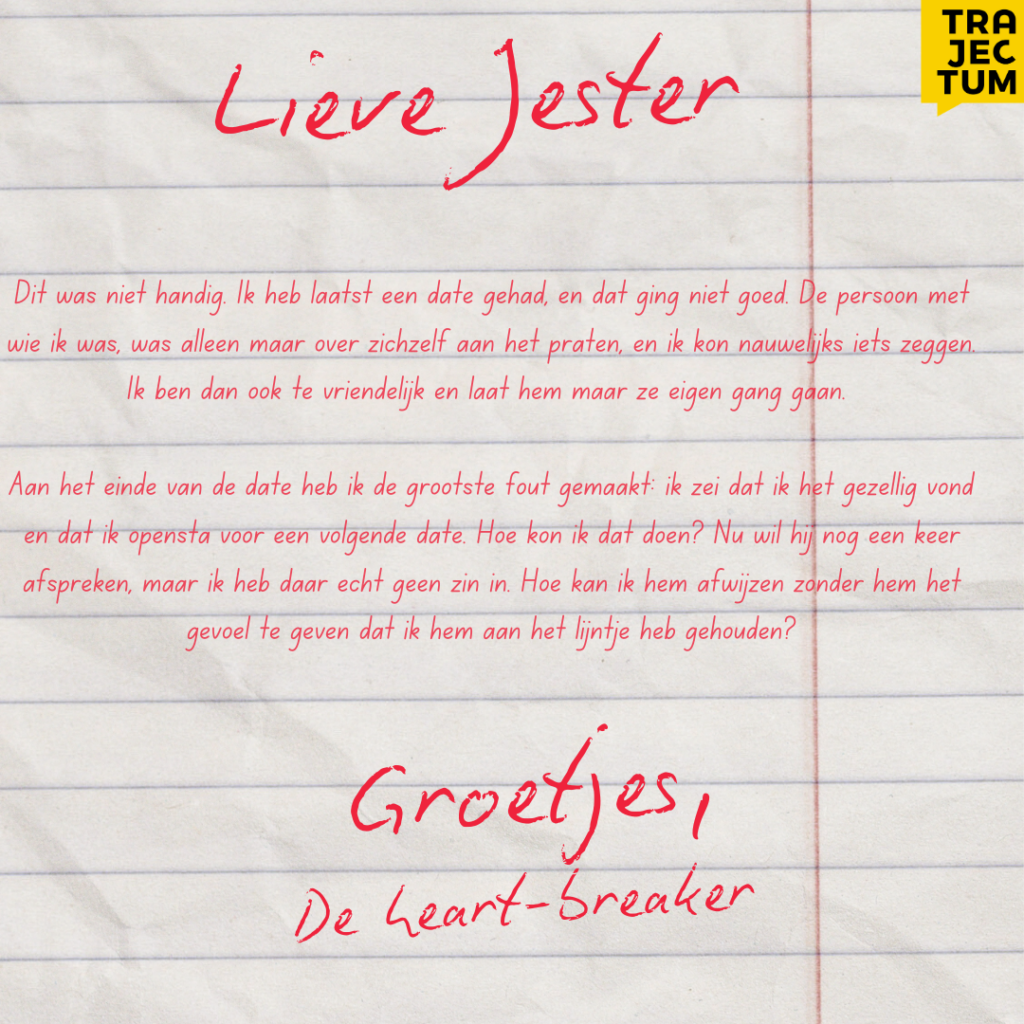 TRA
JEC
TUM
Lieve Jester
Dit was niet handig. Ik heb laatst een date gehad, en dat ging niet goed. De persoon met
wie ik was, was alleen maar over zichzelf aan het praten, en ik kon nauwelijks iets zeggen.
Ik ben dan ook te vriendelijk en laat hem maar ze eigen gang gaan.
Aan het einde van de date heb ik de grootste fout gemaakt: ik zei dat ik het gezellig vond
en dat ik opensta voor een volgende date. Hoe kon ik dat doen? Nu wil hij nog een keer
afspreken, maar ik heb daar echt geen zin in. Hoe kan ik hem afwijzen zonder hem het
gevoel te geven dat ik hem aan het lijntje heb gehouden?
Groetjes,
De heart-breaker